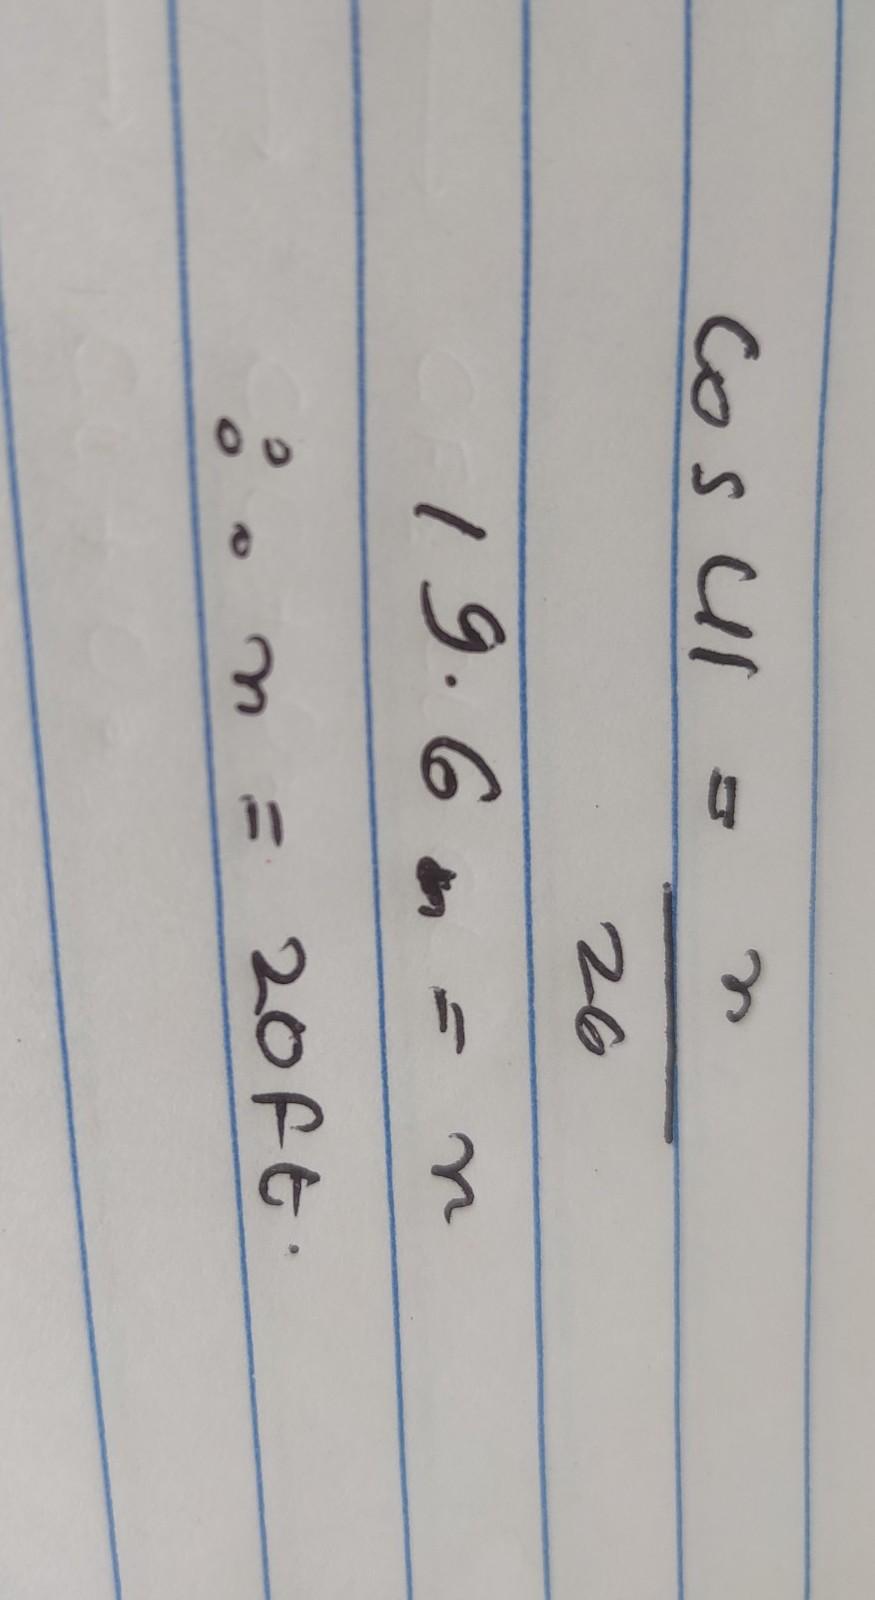 cos 41 = n
26
19.6 = n
∴ n = 20ft.